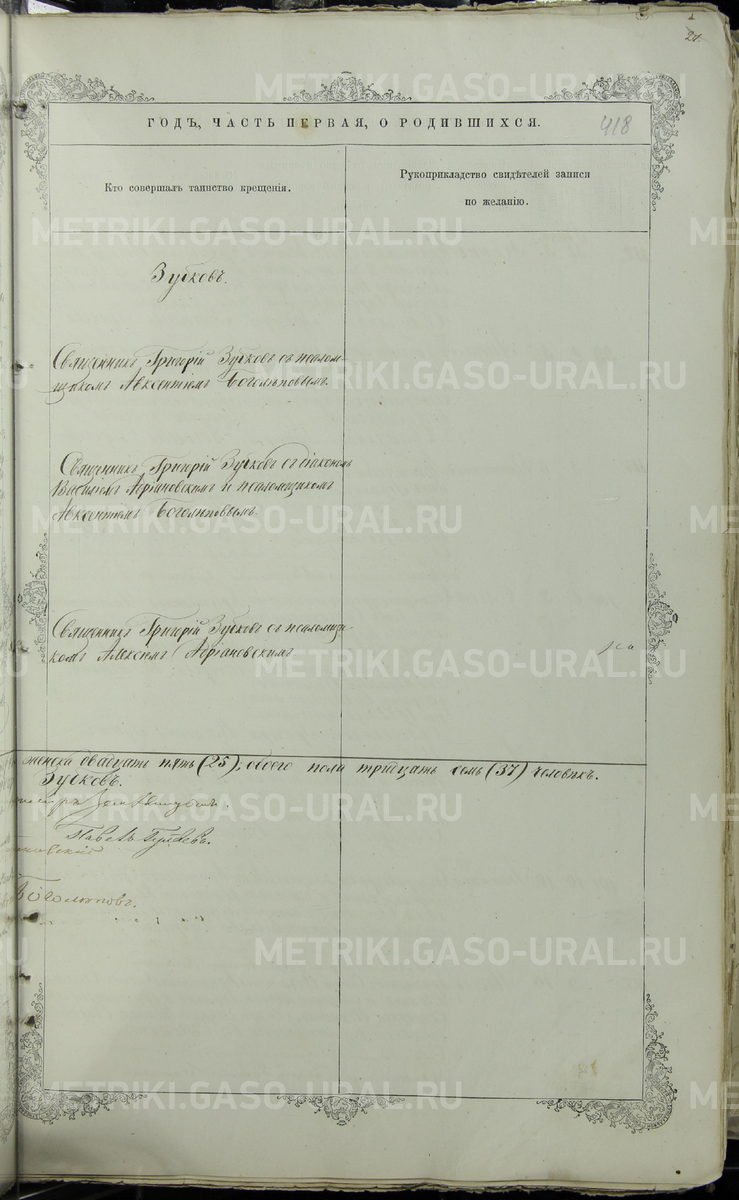 21
418
ГОДЪ, ЧАСТЬ ПЕРВАЯ, О РОДИВШИХСЯ.
Кто совершалъ таинство крещенія.
Рукоприкладство свидѣтелей записи
по желанію.
Зубковъ.
Священникъ Григорій Зубковъ съ псалом-
щикомъ Авксентіемъ Боголѣповымъ.
Священникъ Григорій Зубковъ съ діакономъ
Василіемъ Адріановскимъ и псаломщикомъ
Авксентіемъ Боголѣповымъ
Священникъ Григорій Зубковъ съ псаломщи-
комъ Алексіемъ Адріановскимъ
женска двадцать пять (25), обоего пола тридцать семь (37) человѣкъ.
Зубковъ.
Павелъ
Боголѣповъ.
METRIKI.GASO-URAL.RU